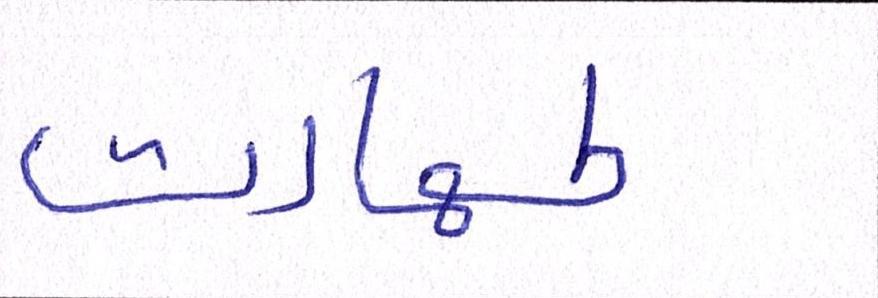 طہارت